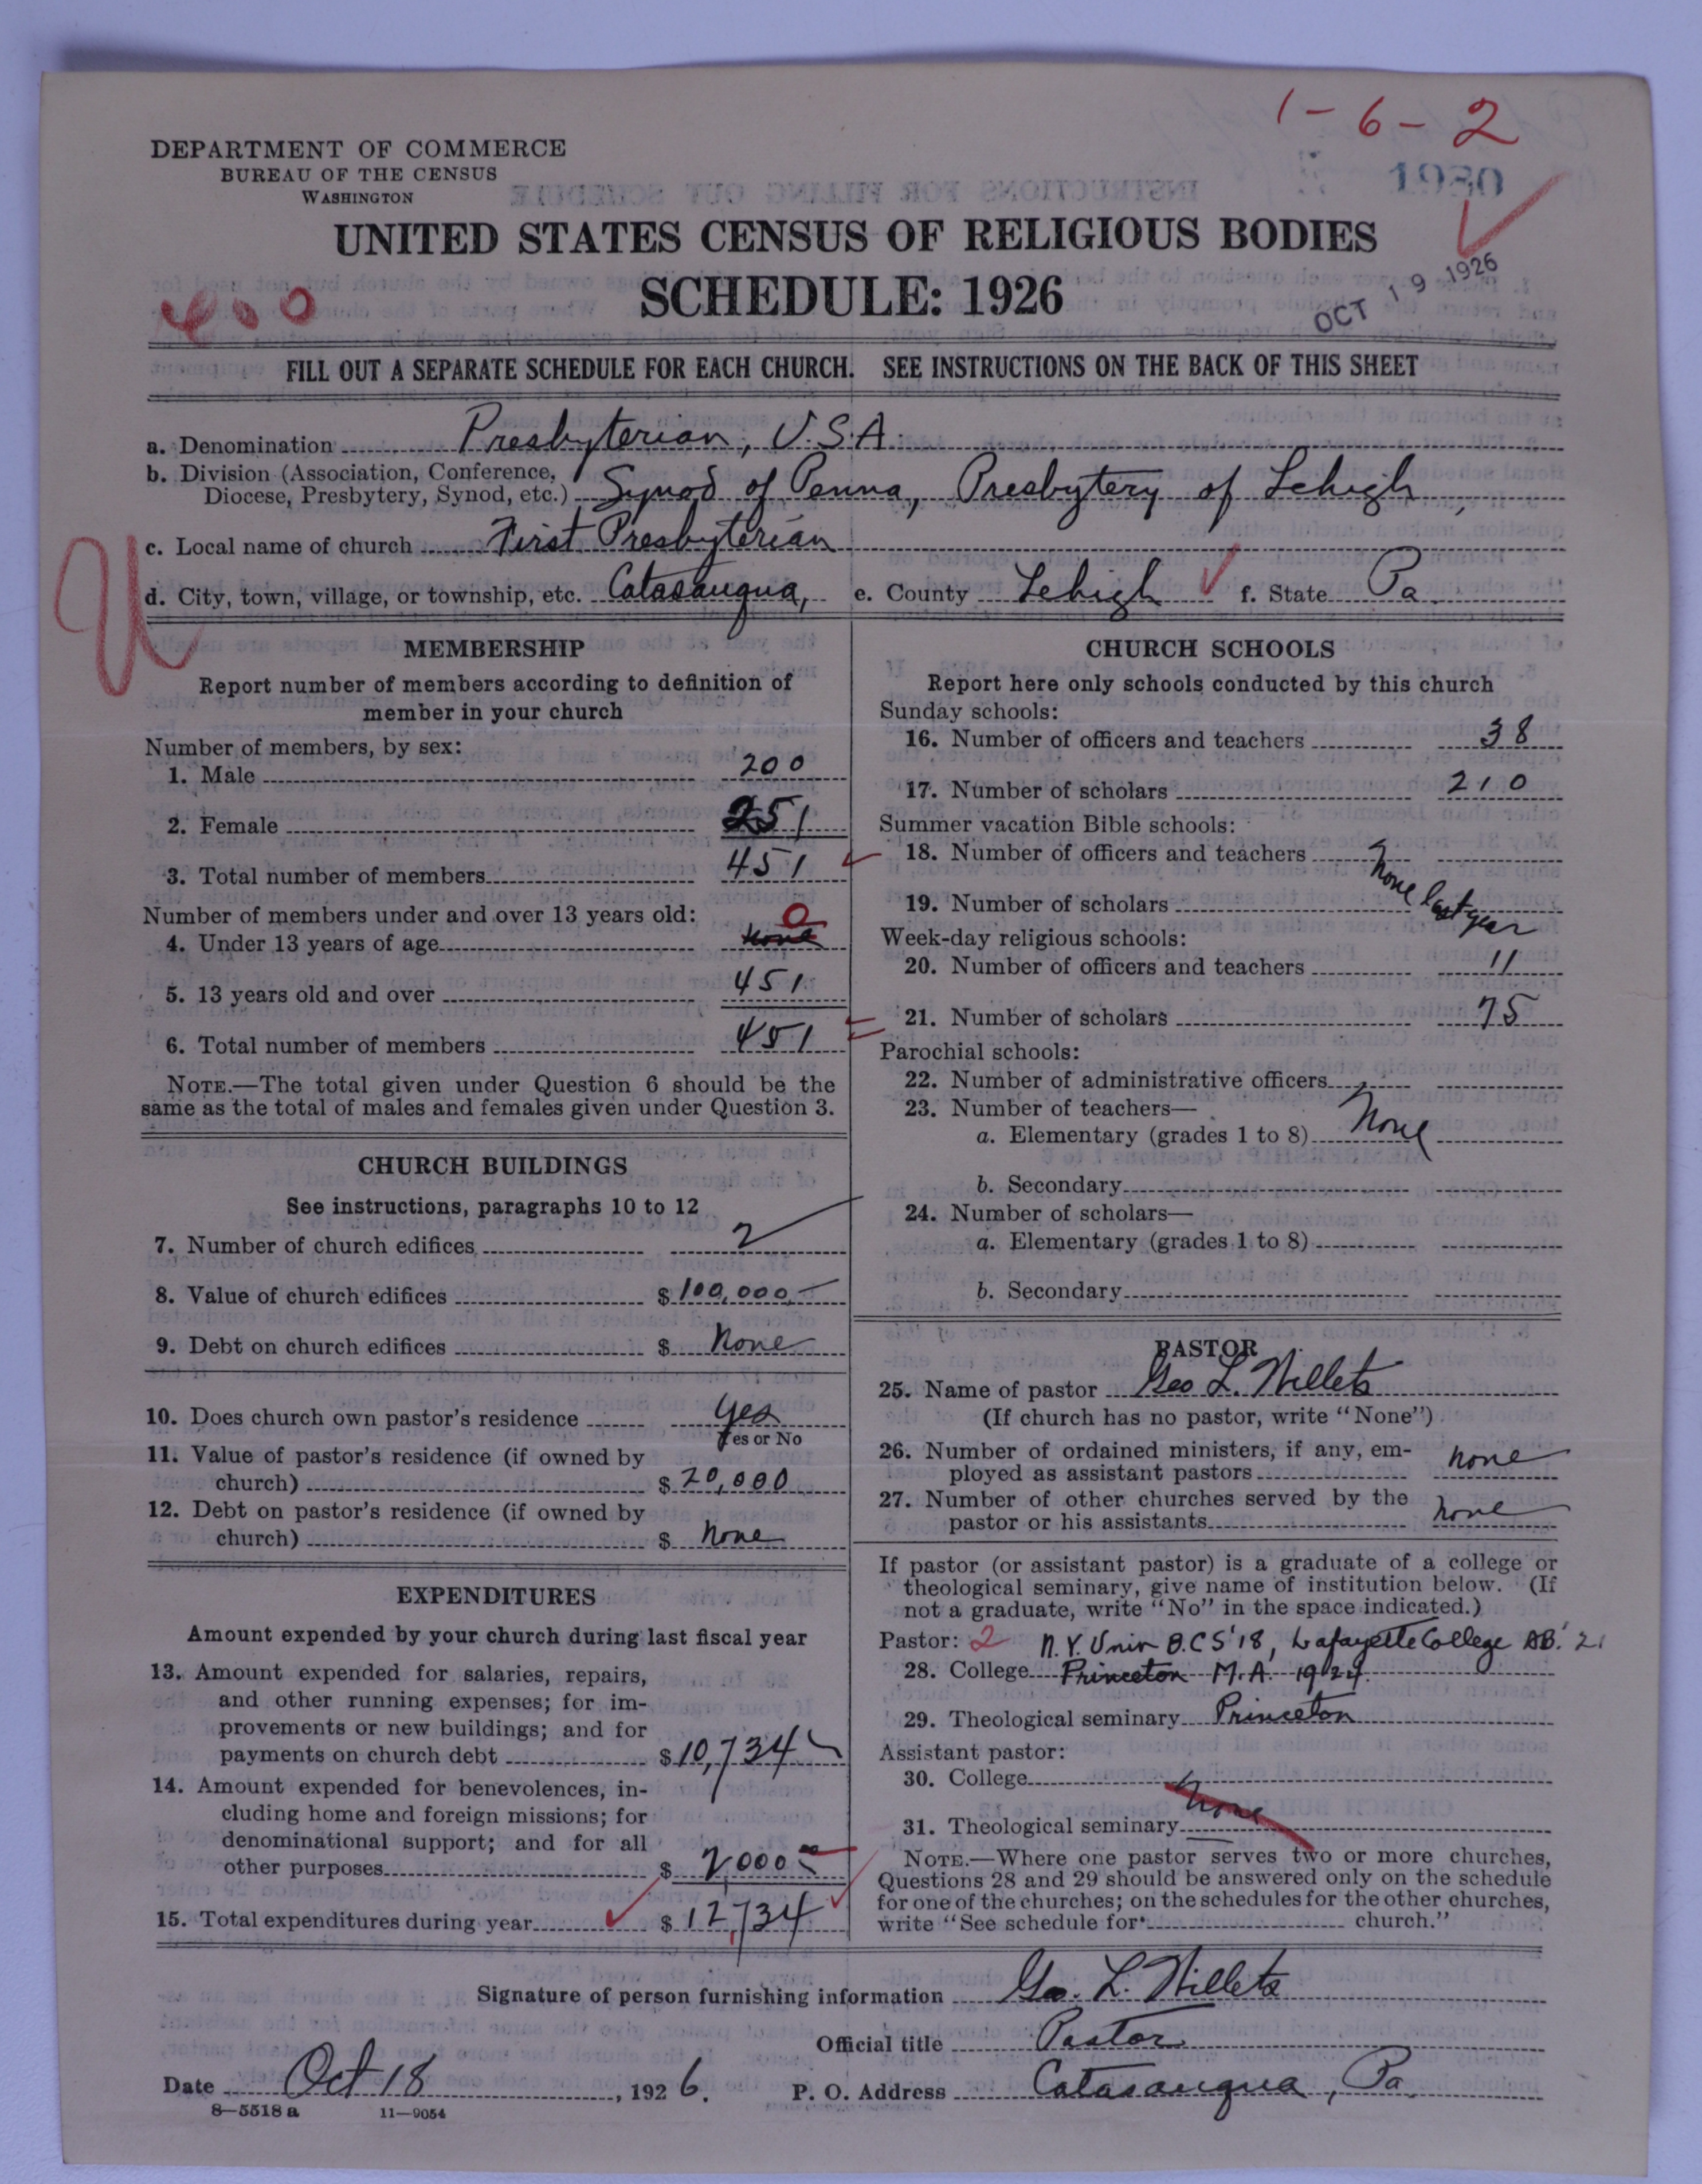 1-6-2
DEPARTMENT OF COMMERCE
BUREAU OF THE CENSUS
WASHINGTON
1980
UNITED STATES CENSUS OF RELIGIOUS BODIES
SCHEDULE: 1926
OCT 19 1926
FILL OUT A SEPARATE SCHEDULE FOR EACH CHURCH. SEE INSTRUCTIONS ON THE BACK OF THIS SHEET
a. Denomination Presbyterian, U.S.A.
b. Division (Association, Conference,
Diocese, Presbytery, Synod, etc.) Synod of Penna, Presbytery of Lehigh,
c. Local name of church First Presbyterian
d. City, town, village, or township, etc. Catasauqua, e. County Lehigh f. State Pa.
MEMBERSHIP
Report number of members according to definition of
member in your church
Number of members, by sex:
1. Male 200
2. Female 251
3. Total number of members 451
Number of members under and over 13 years old:
4. Under 13 years of age none 0
5. 13 years old and over 451
6. Total number of members 451
NOTE.—The total given under Question 6 should be the
same as the total of males and females given under Question 3.
CHURCH BUILDINGS
See instructions, paragraphs 10 to 12
7. Number of church edifices 2
8. Value of church edifices $ 100,000.—
9. Debt on church edifices $ None
10. Does church own pastor's residence Yes
Yes or No
11. Value of pastor's residence (if owned by
church) $ 20,000
12. Debt on pastor's residence (if owned by
church) $ None
EXPENDITURES
Amount expended by your church during last fiscal year
13. Amount expended for salaries, repairs,
and other running expenses; for im-
provements or new buildings; and for
payments on church debt $ 10,734
14. Amount expended for benevolences, in-
cluding home and foreign missions; for
denominational support; and for all
other purposes $ 2000
15. Total expenditures during year $ 12,734
CHURCH SCHOOLS
Report here only schools conducted by this church
Sunday schools:
16. Number of officers and teachers 38
17. Number of scholars 210
Summer vacation Bible schools:
18. Number of officers and teachers None last year
19. Number of scholars
Week-day religious schools:
20. Number of officers and teachers 11
21. Number of scholars 75
Parochial schools:
22. Number of administrative officers
23. Number of teachers—
a. Elementary (grades 1 to 8) None
b. Secondary
24. Number of scholars—
a. Elementary (grades 1 to 8)
b. Secondary
PASTOR
25. Name of pastor Geo L. Willets
(If church has no pastor, write "None")
26. Number of ordained ministers, if any, em-
ployed as assistant pastors none
27. Number of other churches served by the
pastor or his assistants none
If pastor (or assistant pastor) is a graduate of a college or
theological seminary, give name of institution below. (If
not a graduate, write "No" in the space indicated.)
Pastor: 2 N.Y. Univ B.C.S '18, Lafayette College AB. '21
28. College Princeton M.A. 1924.
29. Theological seminary Princeton
Assistant pastor:
30. College none
31. Theological seminary
NOTE.—Where one pastor serves two or more churches,
Questions 28 and 29 should be answered only on the schedule
for one of the churches; on the schedules for the other churches,
write "See schedule for church."
Signature of person furnishing information Geo. L. Willets
Official title Pastor
Date Oct 18, 1926. P. O. Address Catasauqua, Pa.
8—5518 a 11—9054